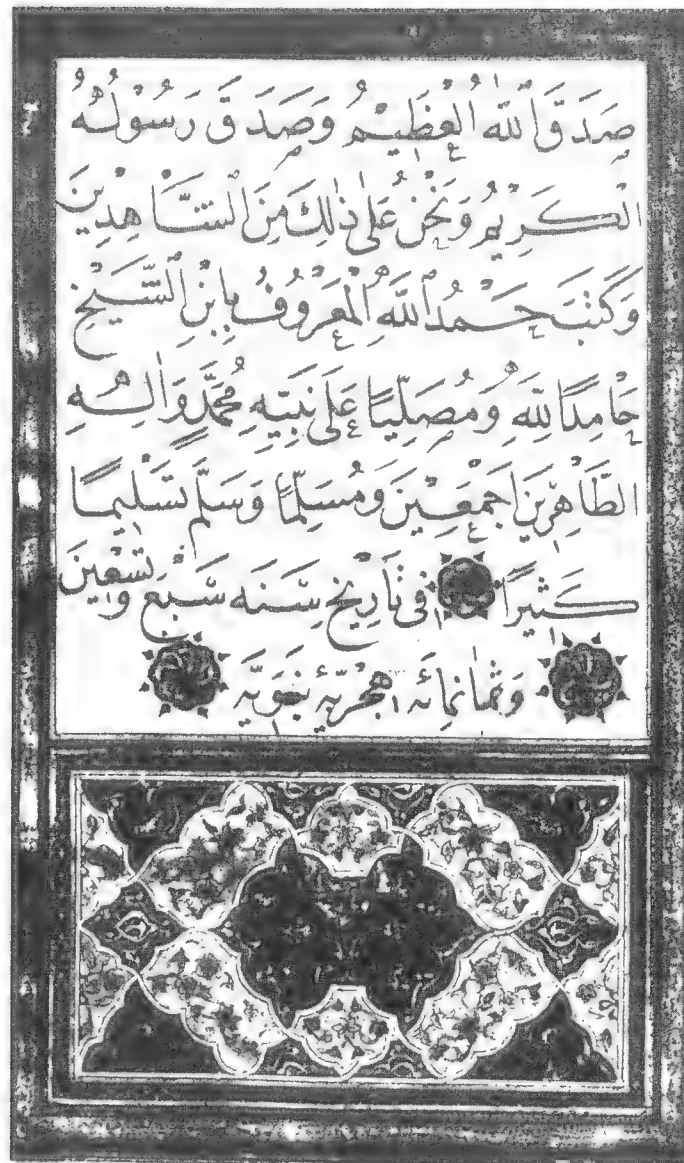 صَدَقَ اللّٰهُ الْعَظِيْمُ وَصَدَقَ رَسُوْلُهُ
الْكَرِيْمُ وَنَحْنُ عَلٰى ذٰلِكَ مِنَ الشَّاهِدِيْنَ
وَكَتَبَ حَمْدُ اللّٰهِ الْمَعْرُوْفُ بِابْنِ الشَّيْخِ
حَامِدًا لِلّٰهِ وَمُصَلِّيًا عَلٰى نَبِيِّهِ مُحَمَّدٍ وَاٰلِهِ
الطَّاهِرِيْنَ اَجْمَعِيْنَ وَمُسَلِّمًا وَسَلَّمَ تَسْلِيْمًا
كَثِيْرًا فِى تَارِيْخِ سَنَه سَبْعٍ وَتِسْعِيْنَ
وَثَمَانِمِائَه هِجْرِيَّه نَبَوِيَّه